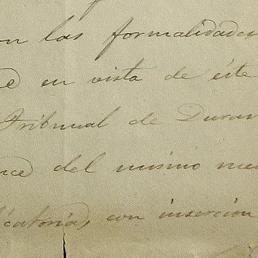 on las formalidades
en vista de éste
Tribunal de Duran
del mismo
con inserción